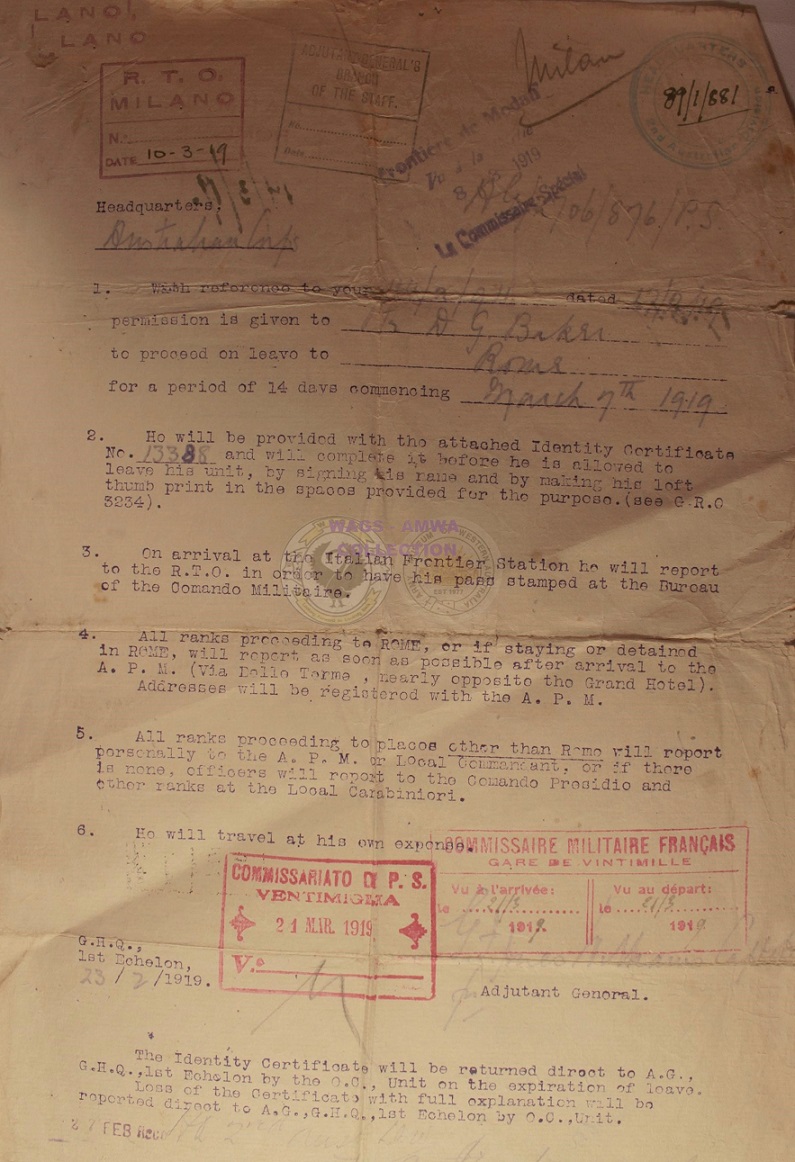 LANO,
LANO
R. T. O.
MILANO
N.
DATE 10-3-19
ADJUTANT GENERAL'S
BRANCH
OF THE STAFF.
No.
Date
Milan
HEADQUARTERS
89/1/881
Frontière de Modan
8 1919
Le Commissaire Spécial
/06/876/P.S.
Headquarters,
Australian Corps
1. With reference to your dated
permission is given to D G Baker
to proceed on leave to Rome
for a period of 14 days commencing March 7th 1919
2. He will be provided with the attached Identity Certificate
No. 13388 and will complete it before he is allowed to
leave his unit, by signing his name and by making his left
thumb print in the spaces provided for the purpose.(see G.R.O
3234).
WAGS AMWA
COLLECTION
3. On arrival at the Italian Frontier Station he will report
to the R.T.O. in order to have his pass stamped at the Bureau
of the Comando Militaire.
4. All ranks proceeding to ROME, or if staying or detained
in ROME, will report as soon as possible after arrival to the
A. P. M. (Via Delle Terme , nearly opposite the Grand Hotel).
Addresses will be registered with the A. P. M.
5. All ranks proceeding to places other than Rome will report
personally to the A. P. M. or Local Commandant, or if there
is none, officers will report to the Comando Presidio and
other ranks at the Local Carabiniori.
6. He will travel at his own expense.
COMMISSAIRE MILITAIRE FRANÇAIS
GARE DE VINTIMILLE
Vu à l'arrivée: Vu au départ:
le 21/3 le 21/3
1919. 1919.
COMMISSARIATO DI P. S.
VENTIMIGLIA
21 MAR. 1919
V.º
G.H.Q.,
1st Echelon,
23/2/1919.
Adjutant General.
The Identity Certificate will be returned direct to A.G.,
G.H.Q.,1st Echelon by the O.C., Unit on the expiration of leave.
Loss of the Certificate with full explanation will be
reported direct to A.G.,G.H.Q.,1st Echelon by O.C.,Unit.
27 FEB Recd